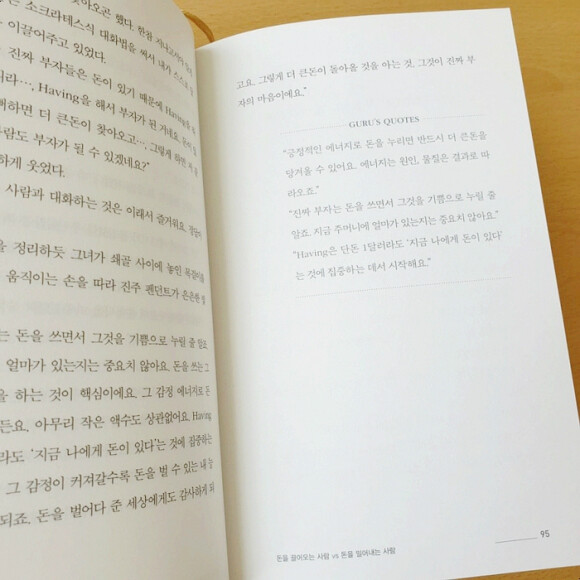 찾아오곤 했다. 한참 지나고서야
는 소크라테스식 대화법을 써서 내가 스스로
이끌어주고 있었다.
진짜 부자들은 돈이 있기 때문에 Having을
라…, Having을 해서 부자가 된 거네요.
하면 더 큰돈이 찾아오고…. 그렇게 하면
람도 부자가 될 수 있겠네요?"
하게 웃었다.
사람과 대화하는 것은 이래서 즐거워요.
을 정리하듯 그녀가 쇄골 사이에 놓인 목걸이를
움직이는 손을 따라 진주 펜던트가 은은한
는 돈을 쓰면서 그것을 기쁨으로 누릴 줄 알죠
얼마가 있는지는 중요치 않아요. 돈을 쓰는 그
을 하는 것이 핵심이에요. 그 감정 에너지로 돈
든요. 아무리 작은 액수도 상관없어요. Having
라도 '지금 나에게 돈이 있다'는 것에 집중하는
그 감정이 커져갈수록 돈을 벌 수 있는 내
되죠. 돈을 벌어다 준 세상에게도 감사하게 되
고요. 그렇게 더 큰돈이 돌아올 것을 아는 것, 그것이 진짜 부
자의 마음이에요."
GURU'S QUOTES
"긍정적인 에너지로 돈을 누리면 반드시 더 큰돈을
당겨올 수 있어요. 에너지는 원인, 물질은 결과로 따
라오죠."
"진짜 부자는 돈을 쓰면서 그것을 기쁨으로 누릴 줄
알죠. 지금 주머니에 얼마가 있는지는 중요치 않아요."
"Having은 단돈 1달러라도 '지금 나에게 돈이 있다'
는 것에 집중하는 데서 시작해요."
95
돈을 끌어오는 사람 vs 돈을 밀어내는 사람